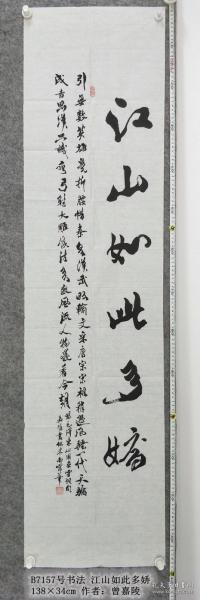 江山如此多娇
引无数英雄竞折腰惜秦皇汉武略输文采唐宗宋祖稍逊风骚一代天骄
成吉思汗只识弯弓射大雕俱往矣数风流人物还看今朝
B7157号书法 江山如此多娇
138×34cm 作者：曾嘉陵